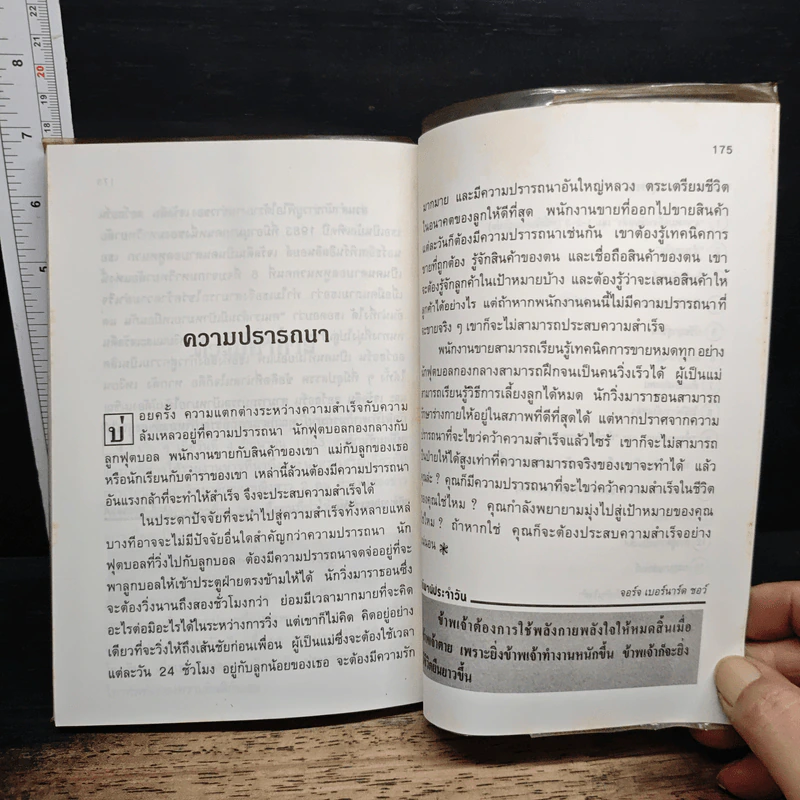 ความปรารถนา
บ่อยครั้ง ความแตกต่างระหว่างความสำเร็จกับความ
ล้มเหลวอยู่ที่ความปรารถนา นักฟุตบอลกองกลางกับ
ลูกฟุตบอล พนักงานขายกับสินค้าของเขา แม่กับลูกของเธอ
หรือนักเรียนกับตำราของเขา เหล่านี้ล้วนต้องมีความปรารถนา
อันแรงกล้าที่จะทำให้สำเร็จ จึงจะประสบความสำเร็จได้
ในประดาปัจจัยที่จะนำไปสู่ความสำเร็จทั้งหลายแหล่
บางทีอาจจะไม่มีปัจจัยอื่นใดสำคัญกว่าความปรารถนา นัก
ฟุตบอลที่วิ่งไปกับลูกบอล ต้องมีความปรารถนาจดจ่ออยู่ที่จะ
พาลูกบอลให้เข้าประตูฝ่ายตรงข้ามให้ได้ นักวิ่งมาราธอนซึ่ง
จะต้องวิ่งนานถึงสองชั่วโมงกว่า ย่อมมีเวลามากมายที่จะคิด
อะไรต่อมิอะไรได้ในระหว่างการวิ่ง แต่เขาก็ไม่คิด คิดอยู่อย่าง
เดียวที่จะวิ่งให้ถึงเส้นชัยก่อนเพื่อน ผู้เป็นแม่ซึ่งจะต้องใช้เวลา
แต่ละวัน 24 ชั่วโมง อยู่กับลูกน้อยของเธอ จะต้องมีความรัก
175
มากมาย และมีความปรารถนาอันใหญ่หลวง ตระเตรียมชีวิต
ในอนาคตของลูกให้ดีที่สุด พนักงานขายที่ออกไปขายสินค้า
แต่ละวันก็ต้องมีความปรารถนาเช่นกัน เขาต้องรู้เทคนิคการ
ขายที่ถูกต้อง รู้จักสินค้าของตน และเชื่อถือสินค้าของตน เขา
จะต้องรู้จักลูกค้าในเป้าหมายบ้าง และต้องรู้ว่าจะเสนอสินค้าให้
ลูกค้าได้อย่างไร แต่ถ้าหากพนักงานคนนี้ไม่มีความปรารถนาที่
จะขายจริง ๆ เขาก็จะไม่สามารถประสบความสำเร็จ
พนักงานขายสามารถเรียนรู้เทคนิคการขายหมดทุกอย่าง
นักฟุตบอลกองกลางสามารถฝึกจนเป็นคนวิ่งเร็วได้ ผู้เป็นแม่
สามารถเรียนรู้วิธีการเลี้ยงลูกได้หมด นักวิ่งมาราธอนสามารถ
รักษาร่างกายให้อยู่ในสภาพที่ดีที่สุดได้ แต่หากปราศจากความ
ปรารถนาที่จะไขว่คว้าความสำเร็จแล้วไซร้ เขาก็จะไม่สามารถ
ป่ายให้ได้สูงเท่าที่ความสามารถจริงของเขาจะทำได้ แล้ว
คุณล่ะ ? คุณก็มีความปรารถนาที่จะไขว่คว้าความสำเร็จในชีวิต
ของคุณใช่ไหม ? คุณกำลังพยายามมุ่งไปสู่เป้าหมายของคุณ
ใช่ไหม ? ถ้าหากใช่ คุณก็จะต้องประสบความสำเร็จอย่าง
แน่นอน ✻
ประจำวัน จอร์จ เบอร์นาร์ด ชอว์
ข้าพเจ้าต้องการใช้พลังกายพลังใจให้หมดสิ้นเมื่อ
ข้าพเจ้าตาย เพราะยิ่งข้าพเจ้าทำงานหนักขึ้น ข้าพเจ้าก็จะยิ่ง
มีชีวิตยืนยาวขึ้น
8
7
6
22
21
20
19
18
17
16
15